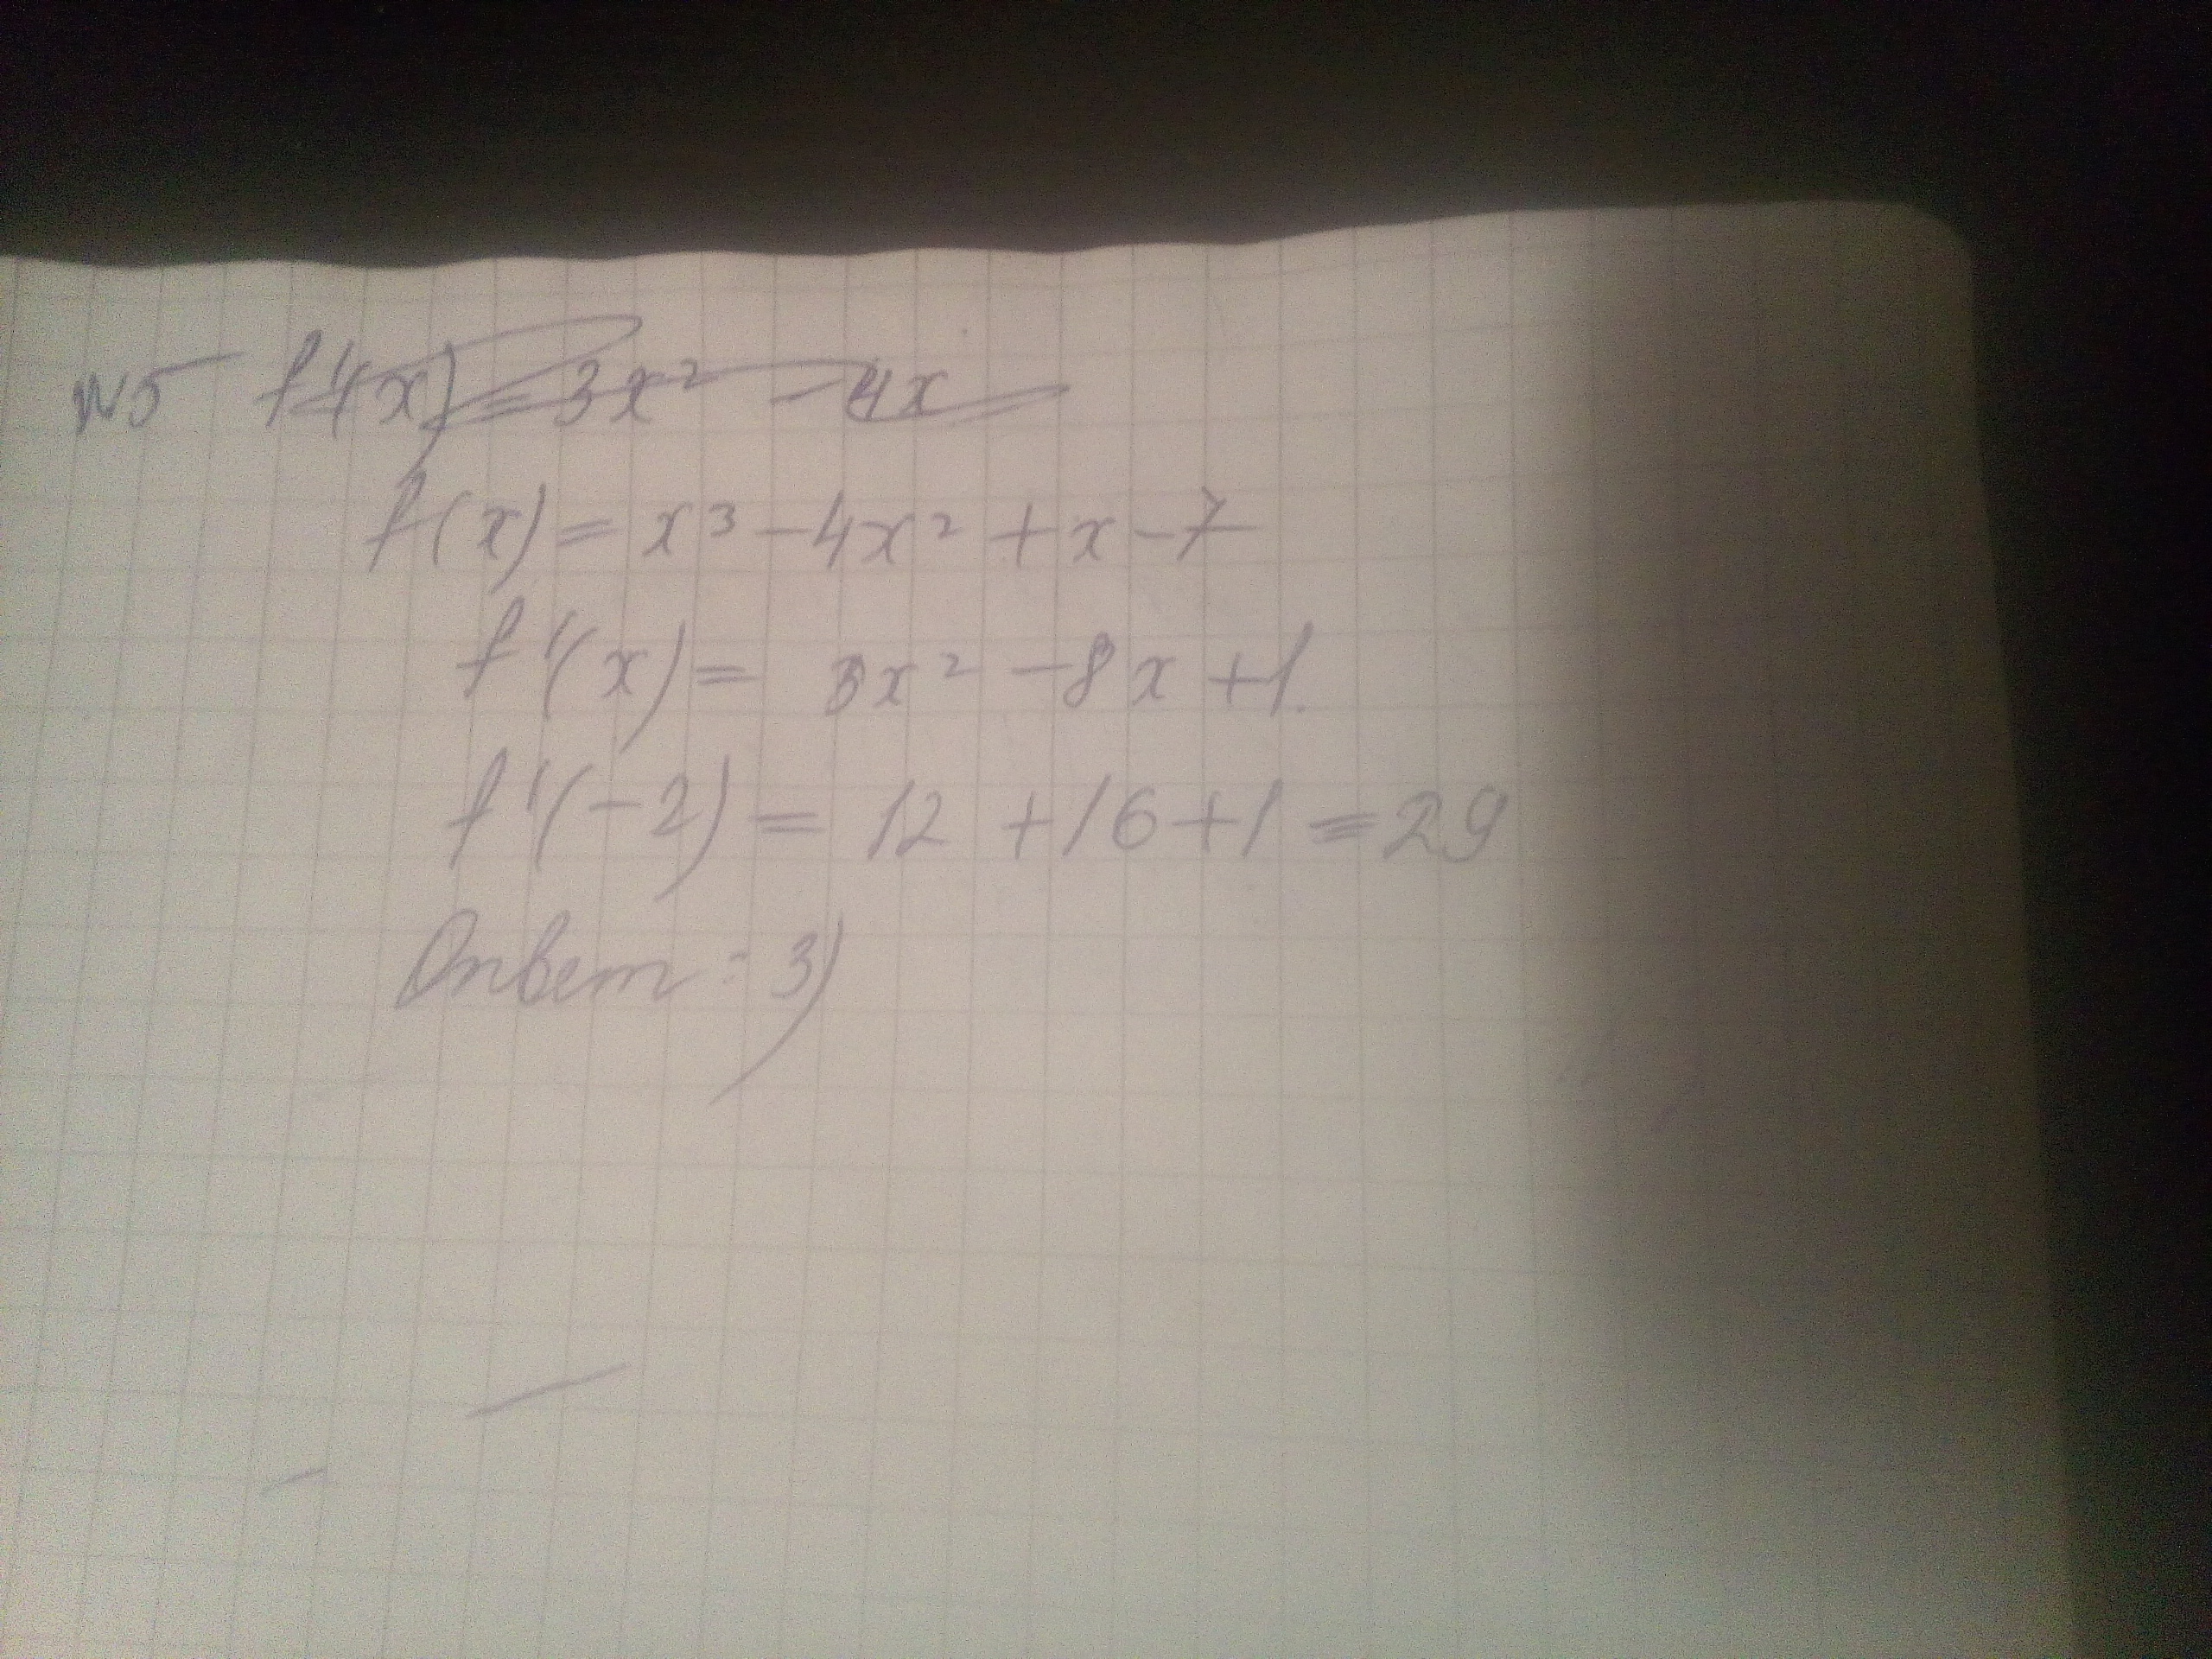 №5 f'(x) = 3x² - 4x
f(x) = x³ - 4x² + x - 7
f'(x) = 3x² - 8x + 1.
f'(-2) = 12 + 16 + 1 = 29
Ответ: 3)